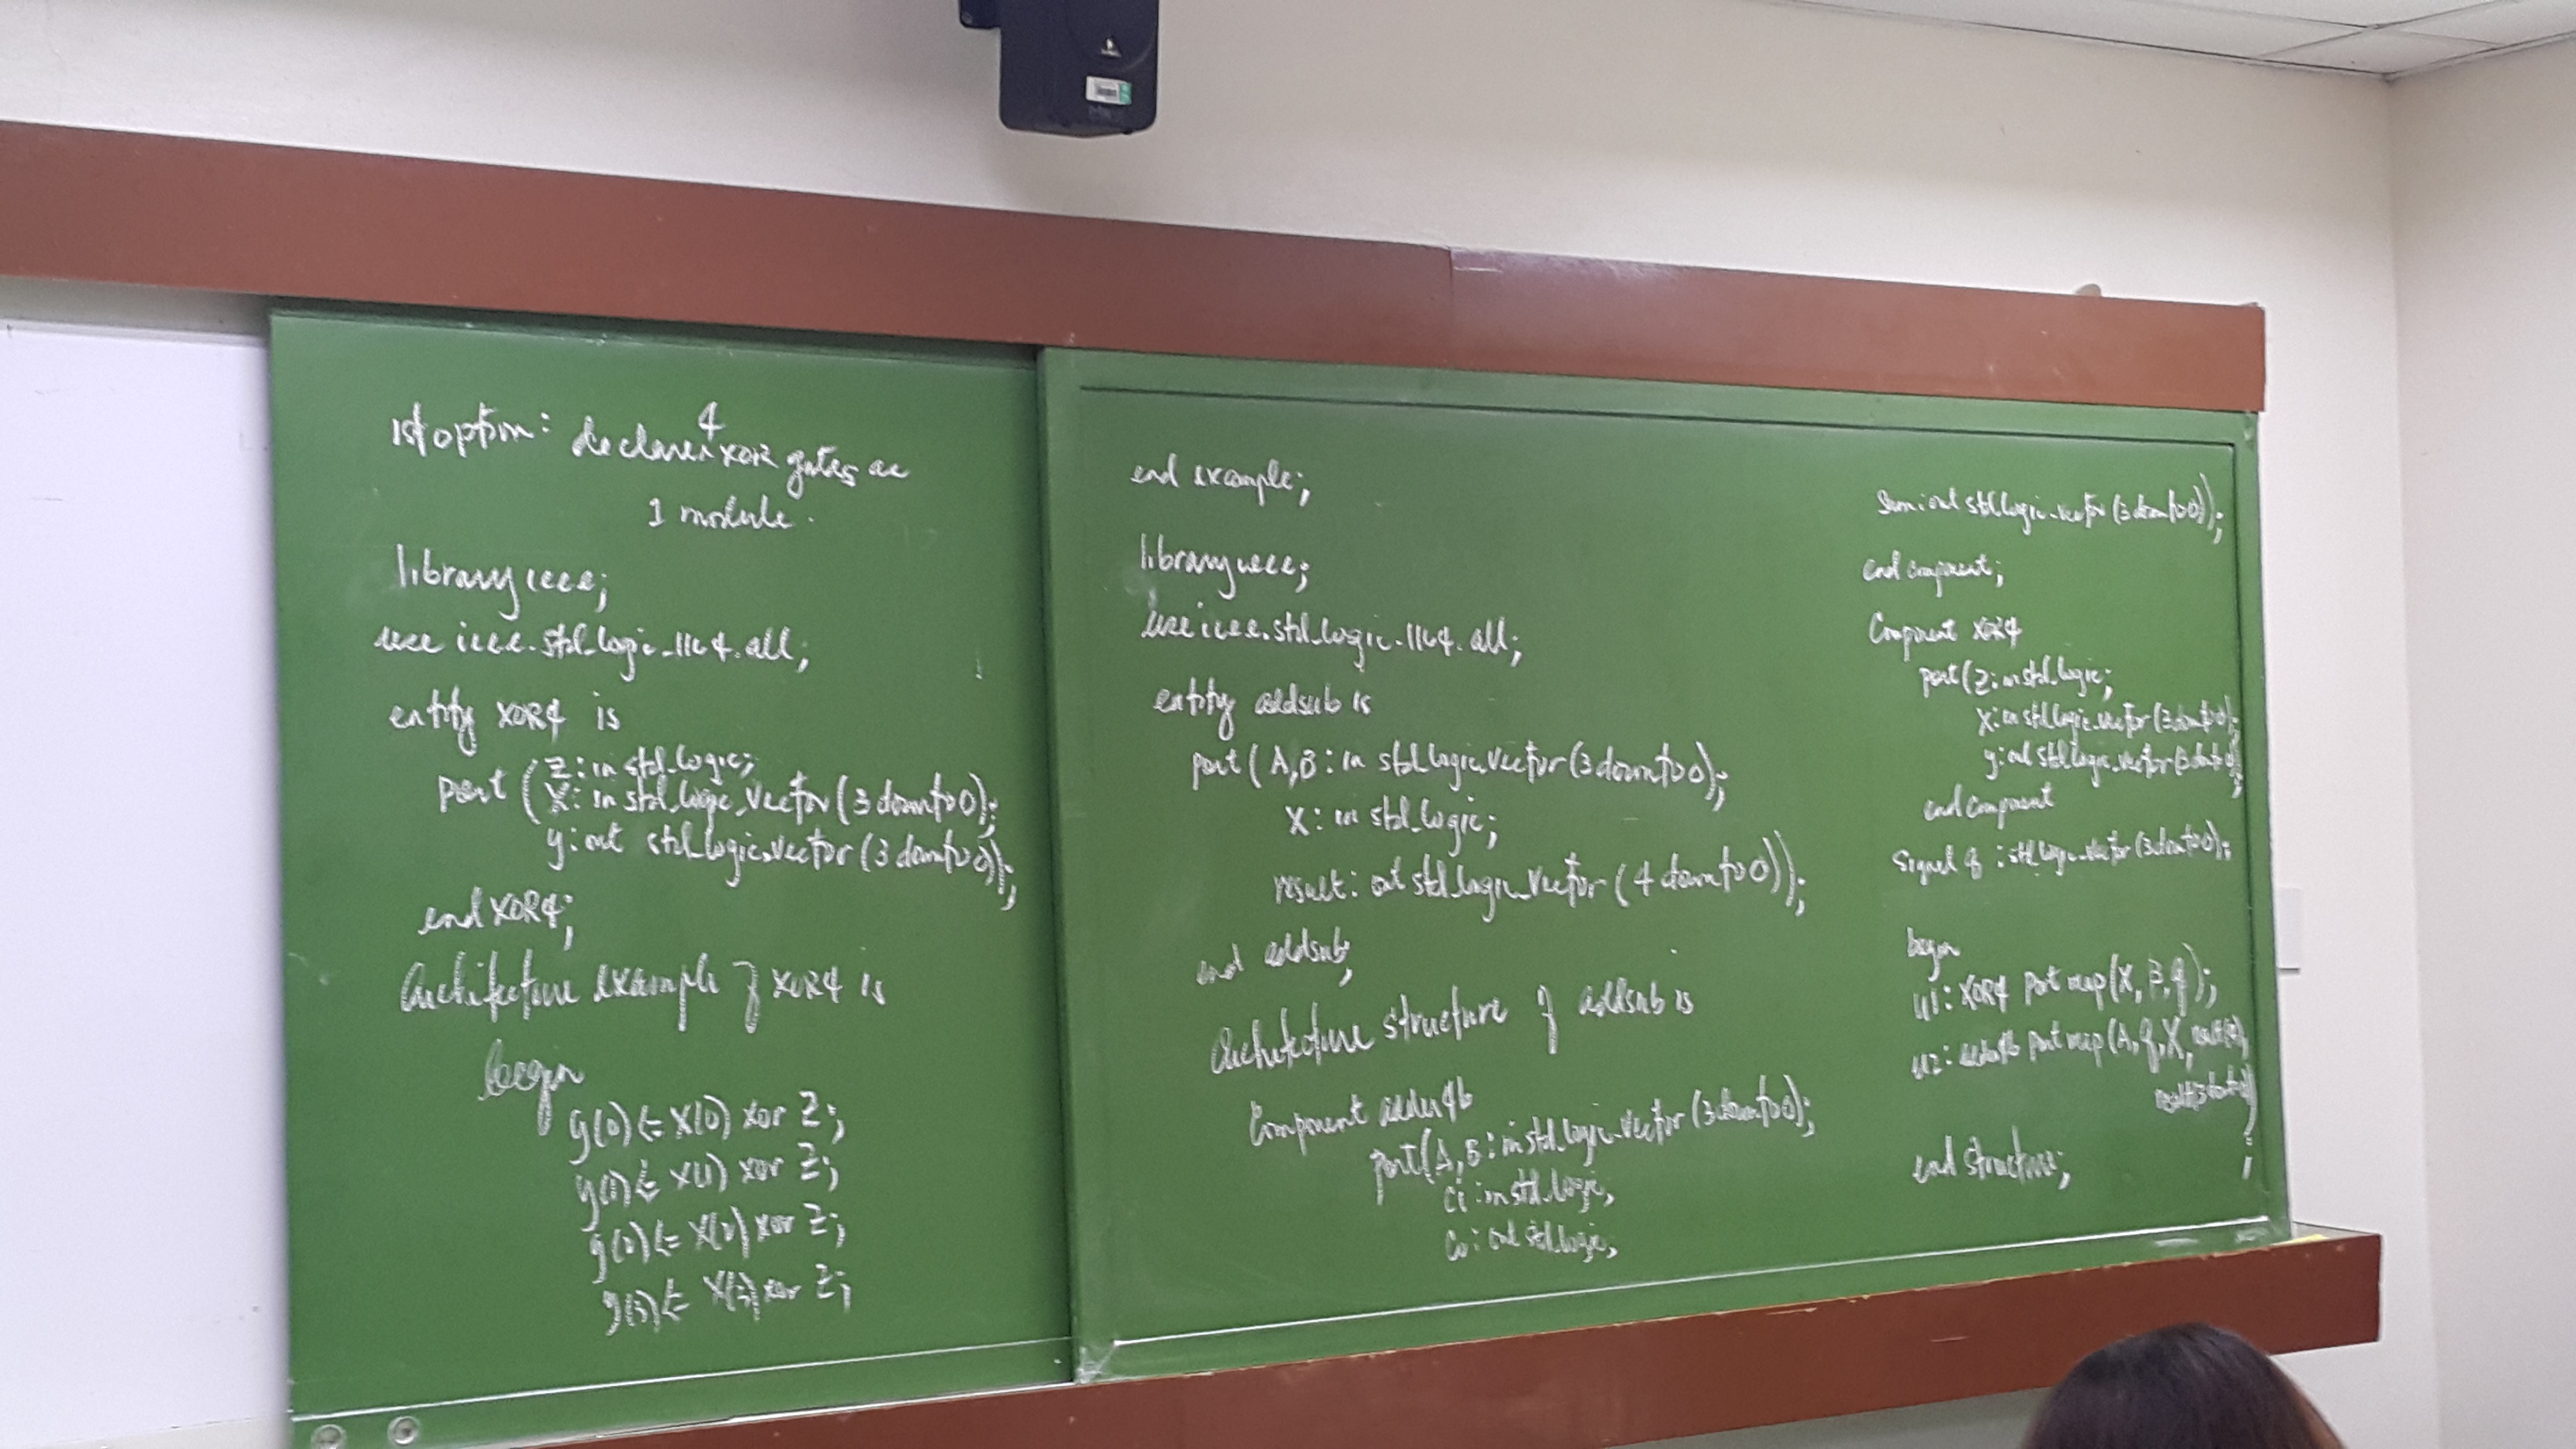 1st option: declare 4 XOR gates as
1 module.
library ieee;
use ieee.std_logic_1164.all;
entity XOR4 is
port (Z: in std_logic;
X: in std_logic_vector(3 downto 0);
y: out std_logic_vector(3 downto 0));
end XOR4;
architecture example of XOR4 is
begin
y(0) <= X(0) xor Z;
y(1) <= X(1) xor Z;
y(2) <= X(2) xor Z;
y(3) <= X(3) xor Z;
end example;
library ieee;
use ieee.std_logic_1164.all;
entity addsub is
port (A,B: in std_logic_vector(3 downto 0);
X: in std_logic;
result: out std_logic_vector(4 downto 0));
end addsub;
architecture structure of addsub is
Component adder4b
port(A,B: in std_logic_vector(3 downto 0);
Ci: in std_logic;
Co: out std_logic;
Sum: out std_logic_vector(3 downto 0));
end component;
Component XOR4
port(Z: in std_logic;
X: in std_logic_vector(3 downto 0);
y: out std_logic_vector(3 downto 0));
end component
Signal q: std_logic_vector(3 downto 0);
begin
u1: XOR4 port map(X, B, q);
u2: adder4b port map(A, q, X, result(4),
result(3 downto 0));
end structure;